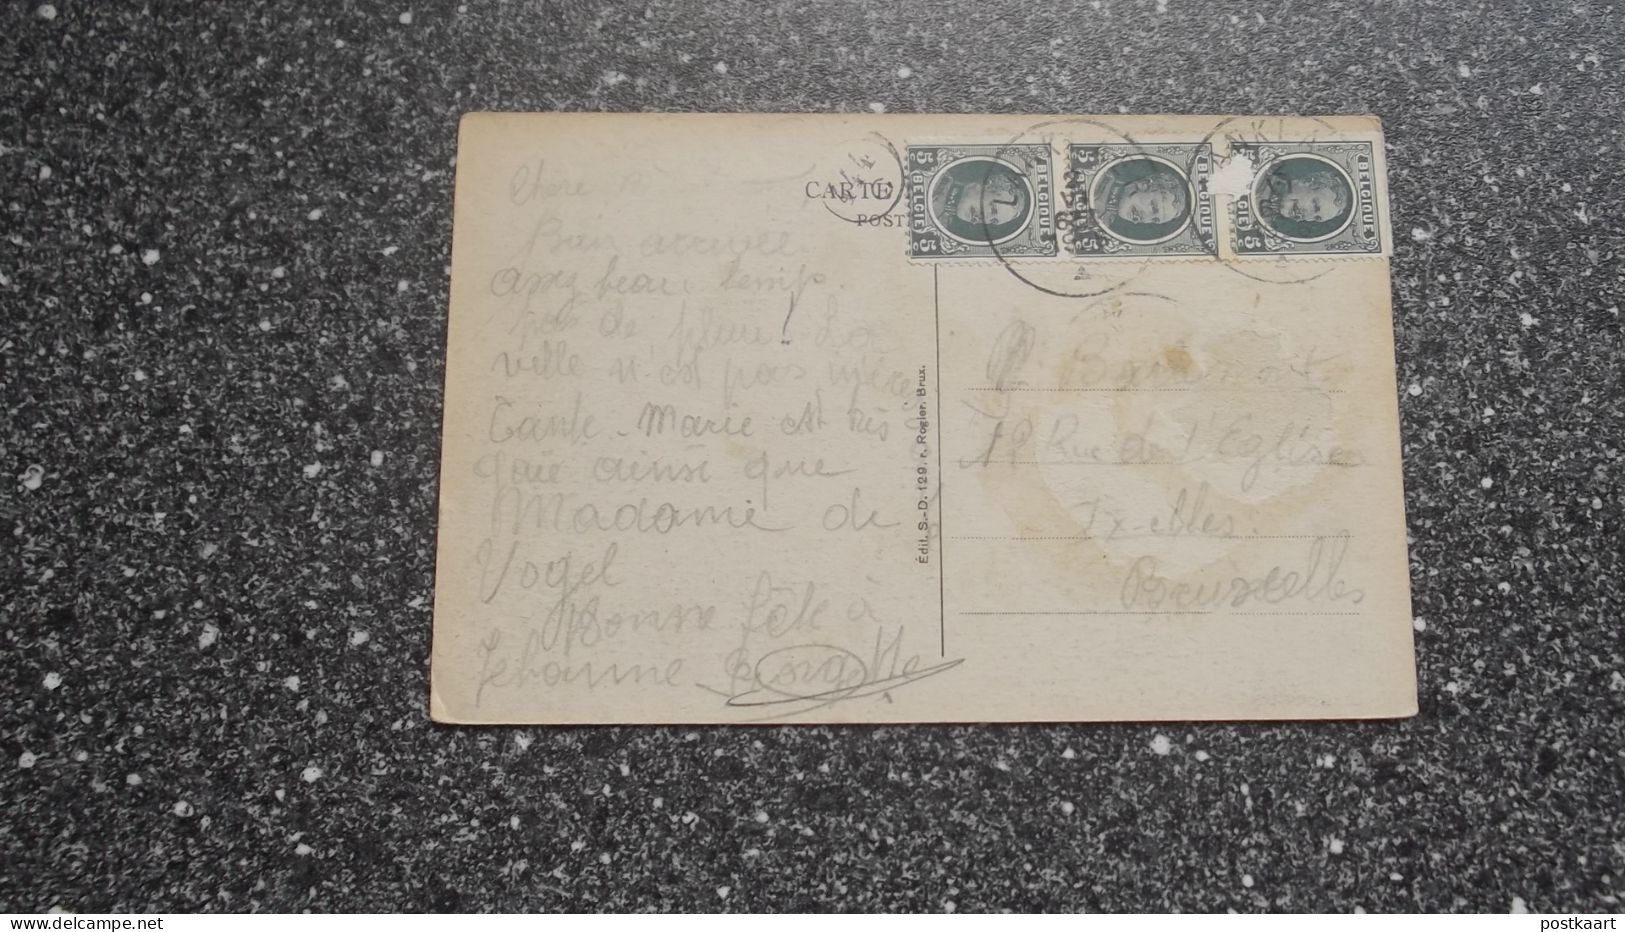 Chère
Bien arrivée
assez beau temps.
pas de pluie! La
ville n'est pas
Tante Marie est très
gaie ainsi que
Madame de
Vogel
Bonne fête à
Jehanne Georgette
CARTE
POST
5 BELGIQUE 5
BELGIË
5 BELGIQUE 5
5 BELGIQUE 5
BELGIË
Édit. S.-D. 129, r. Rogier, Brux.
12 Rue de l'Eglise
Ixelles.
Bruxelles
delcampe.net
postkaart